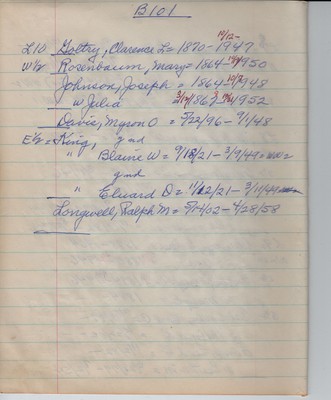 B101
10/12-
L10 Goltry, Clarence L= 1870-1947
W½ Rosenbaum, Mary= 1864-1950
Johnson, Joseph = 1864-1948
W Julia 1867-1952
Davis, Myron O = 5/22/96 - 9/1/48
E½= King, gmd
" Blaine W= 9/18/21-3/9/49
gmd
" Elward D= 11/22/21-3/11/49
Longwell, Ralph M= 5/14/02-4/28/58